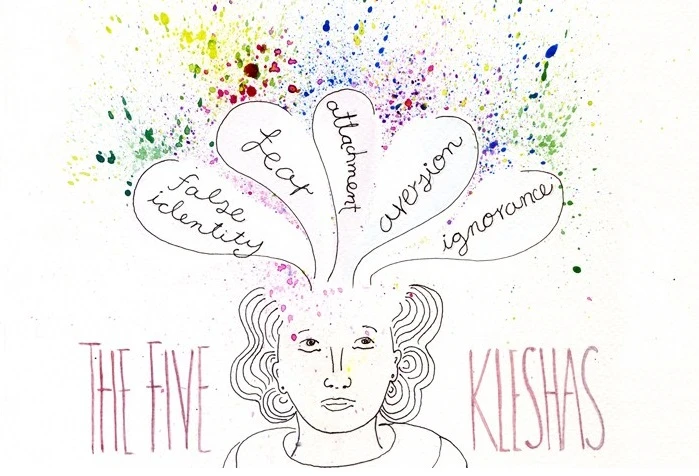 false
identity
fear
attachment
aversion
ignorance
THE FIVE
KLESHAS